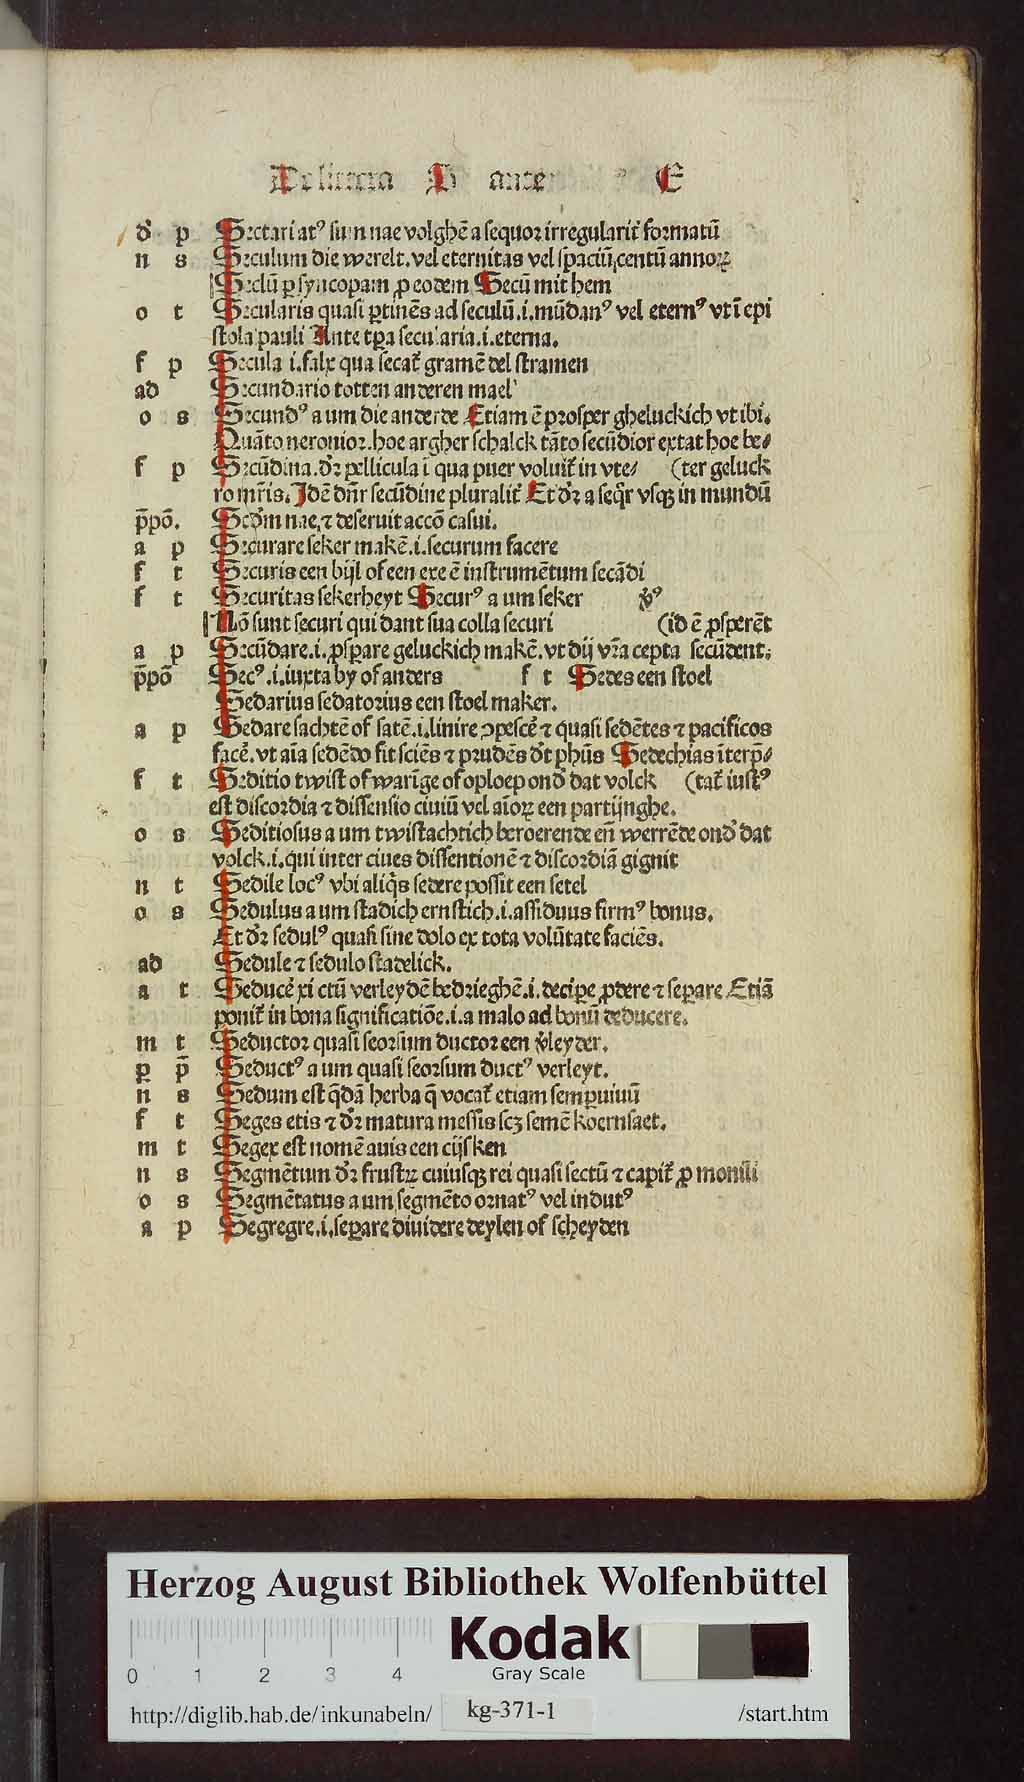 De littera S ante E
d᷒ p Sectari atꝰ sum nae volghē a sequor irregulariť formatū
n s Seculum die werelt. vel eternitas vel spaciū centū annoꝝ
Seclū ꝑ syncopam ꝓ eodem Secū mit hem
o t Secularis quasi ꝑtinēs ad seculū .i. mūdanꝰ vel eternꝰ vt ī epi
stola pauli Ante tp̄a secularia .i. eterna.
f p Secula .i. falx qua secať gramē vel stramen
ad Secundario totten anderen mael
o s Secundꝰ a um die anderde Etiam ē prosper gheluckich vt ibi.
Quāto neronior. hoe argher schalck tāto secūdior extat hoe be⸗
f p Secūdina. dr̄ pellicula ī qua puer voluiť in vte⸗ (ter geluck
ro mr̄is. Idē dn̄r secūdine pluraliť Et dr̄ a seq̄r vsqꝫ in mundū
p̄pō. Scdm̄ nae, ⁊ deseruit accō casui.
a p Securare seker makē .i. securum facere
f t Securis een bijl of een exe ē instrumētum secādi
f t Securitas sekerheyt Securꝰ a um seker v̾ꝰ
Nō sunt securi qui dant sua colla securi (id ē ꝓsperēt
a p Secūdare .i. ꝓsꝑare geluckich makē. vt dij vr̄a cepta secūdent;
p̄pō Secꝰ .i. iuxta by of anders f t Sedes een stoel
Sedarius sedatorius een stoel maker.
a p Sedare sachtē of satē .i. linire ꝯpescē ⁊ quasi sedētes ⁊ pacificos
facē. vt aīa sedēdo fit sciēs ⁊ prudēs dt̄ ph̄us Sedechias īterp̄⸗
f t Seditio twist of warīge of oploep ond᷒ dat volck (tať iustꝰ
est discordia ⁊ dissensio ciuiū vel aīoꝝ een partijnghe.
o s Seditiosus a um twistachtich beroerende en̄ werrēde ond᷒ dat
volck .i. qui inter ciues dissentionē ⁊ discordiā gignit
n t Sedile locꝰ vbi aliq̄s sedere possit een setel
o s Sedulus a um stadich ernstich .i. assiduus firmꝰ bonus.
Et dr̄ sedulꝰ quasi sine dolo ex tota volūtate faciēs.
ad Sedule ⁊ sedulo stadelick.
a t Seducē xi ctū verleydē bedrieghē .i. deciꝑe ꝓdere ⁊ seꝑare Etiā
poniť in bona significatiōe .i. a malo ad bonū deducere.
m t Seductor quasi seorsum ductor een v̾leyder.
ꝑ p̄ Seductꝰ a um quasi seorsum ductꝰ verleyt.
n s Sedum est q̄dā herba q̄ vocať etiam semꝑuiuū
f t Seges etis ⁊ dr̄ matura messis scꝫ semē koernsaet.
m t Segex est nomē auis een cijsken
n s Segmētum dr̄ frustꝝ cuiusqꝫ rei quasi sectū ⁊ capiť ꝓ monili
o s Segmētatus a um segmēto ornatꝰ vel indutꝰ
a p Segregre .i. seꝑare diuidere deylen of scheyden
Herzog August Bibliothek Wolfenbüttel
Kodak
0 1 2 3 4
Gray Scale
http://diglib.hab.de/inkunabeln/ kg-371-1 /start.htm